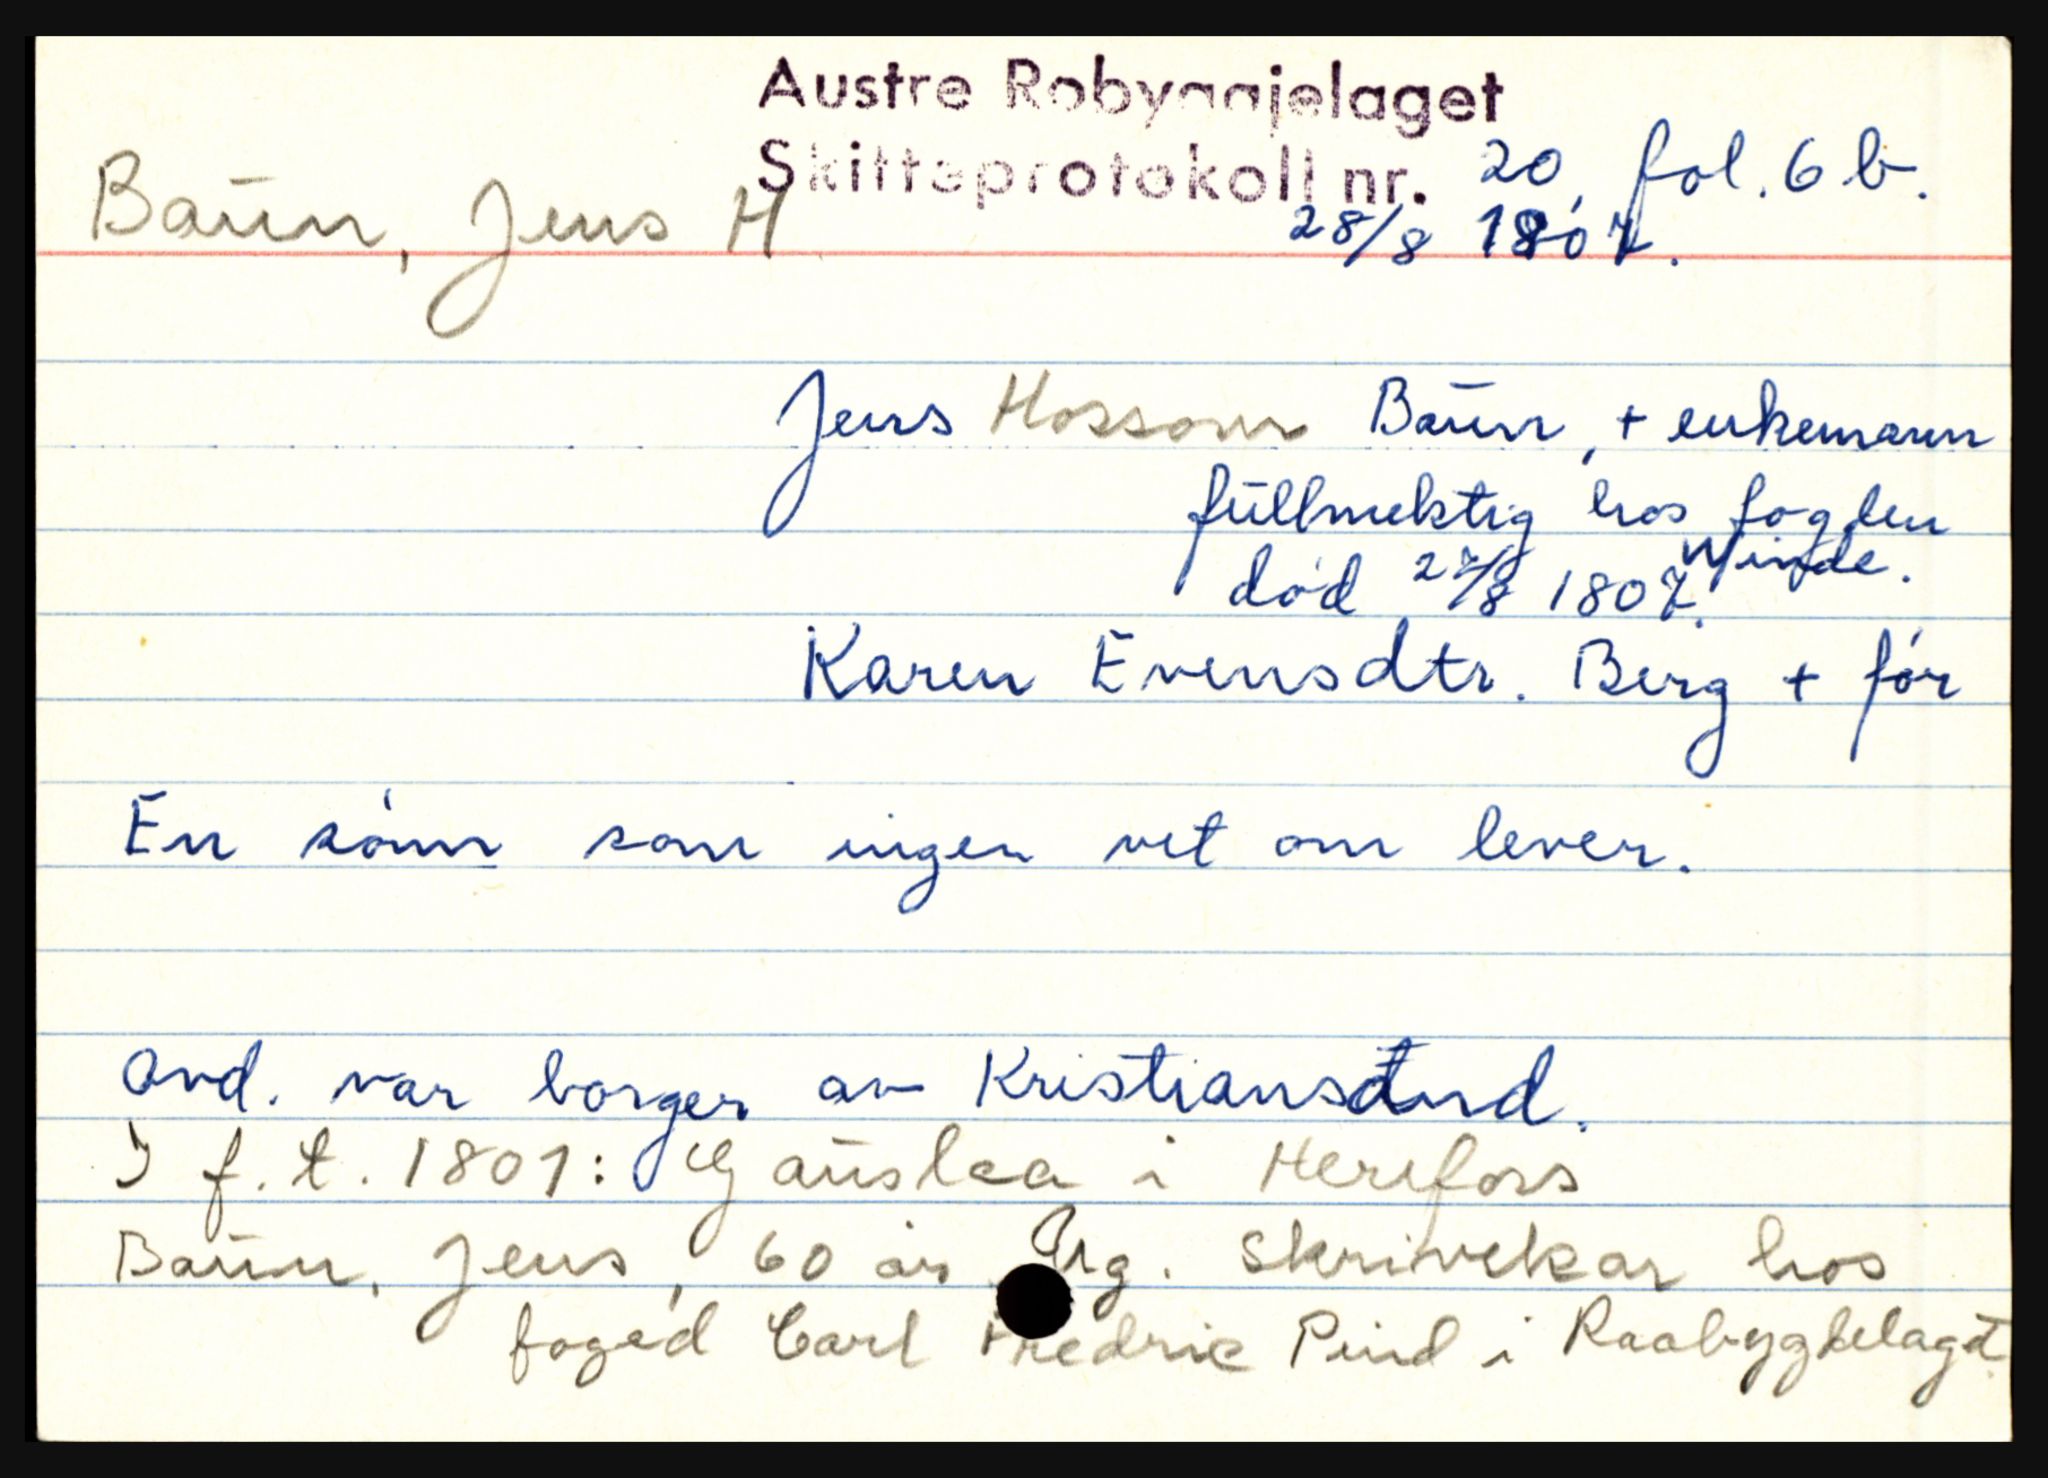 Austre Robyggjelaget
Skifteprotokoll nr. 20, fol. 6 b.
Baun, Jens H 28/8 1807.
Jens Hossom Baun, + enkemann
fullmektig hos fogden
Winde.
død 27/8 1807.
Karen Evensdtr. Berg + før
En sønn som ingen vet om lever.
Avd. var borger av Kristiansand.
I f. t. 1801: Gauslaa i Herefoss
Baun, Jens, 60 år skrivekar hos
foged Carl Fredric Pind i Raabygdelagt